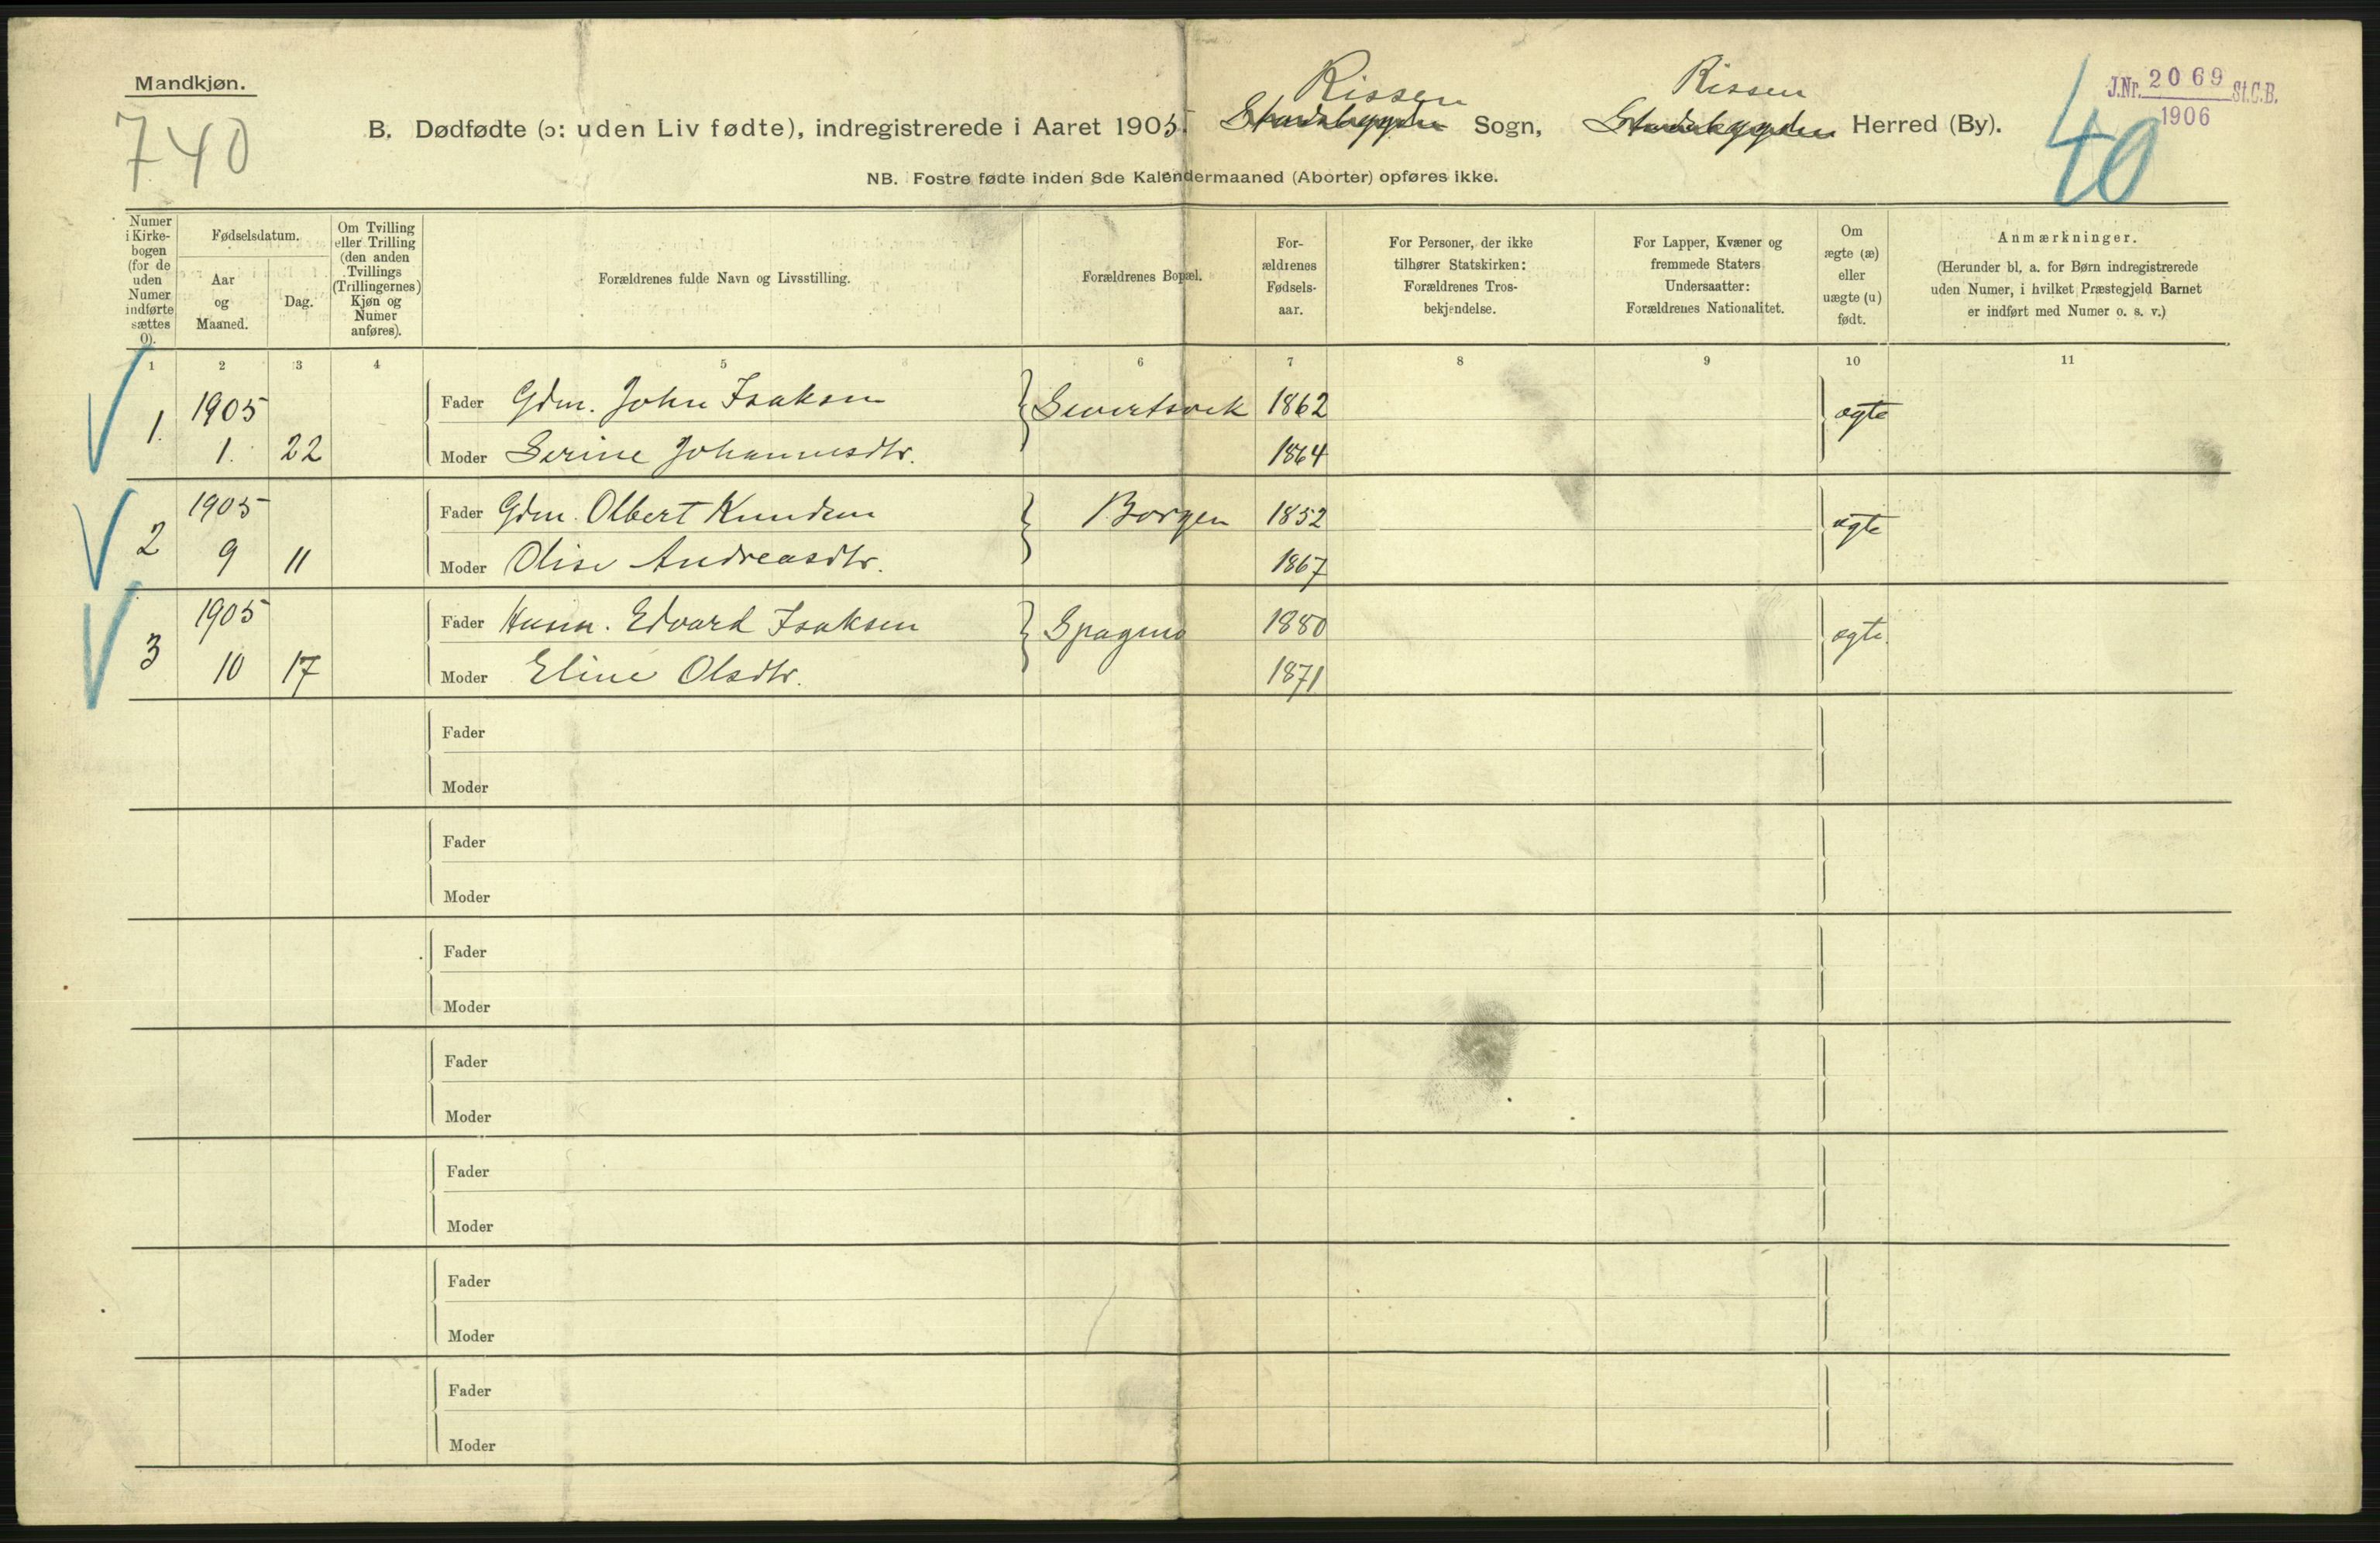 Mandkjøn.
740
B. Dødfødte (ɔ: uden Liv fødte), indregistrerede i Aaret 1905. Rissen Stadsbygden Sogn, Rissen Stadsbygden Herred (By).
NB. Fostre fødte inden 8de Kalendermaaned (Aborter) opføres ikke.
J.Nr. 2069 St.C.B.
1906
40
Numer i Kirke-bogen (for de uden Numer indførte sættes 0).
Fødselsdatum.
Aar og Maaned.
Dag.
Om Tvilling eller Trilling (den anden Tvillings (Trillingernes) Kjøn og Numer anføres).
Forældrenes fulde Navn og Livsstilling.
Forældrenes Bopæl.
For-ældrenes Fødsels-aar.
For Personer, der ikke tilhører Statskirken: Forældrenes Tros-bekjendelse.
For Lapper, Kvæner og fremmede Staters Undersaatter: Forældrenes Nationalitet.
Om ægte (æ) eller uægte (u) født.
Anmærkninger.
(Herunder bl. a. for Børn indregistrerede uden Numer, i hvilket Præstegjeld Barnet er indført med Numer o. s. v.)
1 2 3 4 5 6 7 8 9 10 11
1. 1905 Fader Gdm. John Isaksen Sivertsvik 1862 ægte
1. 22 Moder Serine Johannesdtr. 1864
2 1905 Fader Gdm. Olbert Knudsen Borgen 1852 ægte
9 11 Moder Olise Andreasdtr. 1867
3 1905 Fader Husm. Edvard Isaksen Spagmo 1880 ægte
10 17 Moder Eline Olsdtr. 1871
Fader
Moder
Fader
Moder
Fader
Moder
Fader
Moder
Fader
Moder
Fader
Moder
Fader
Moder